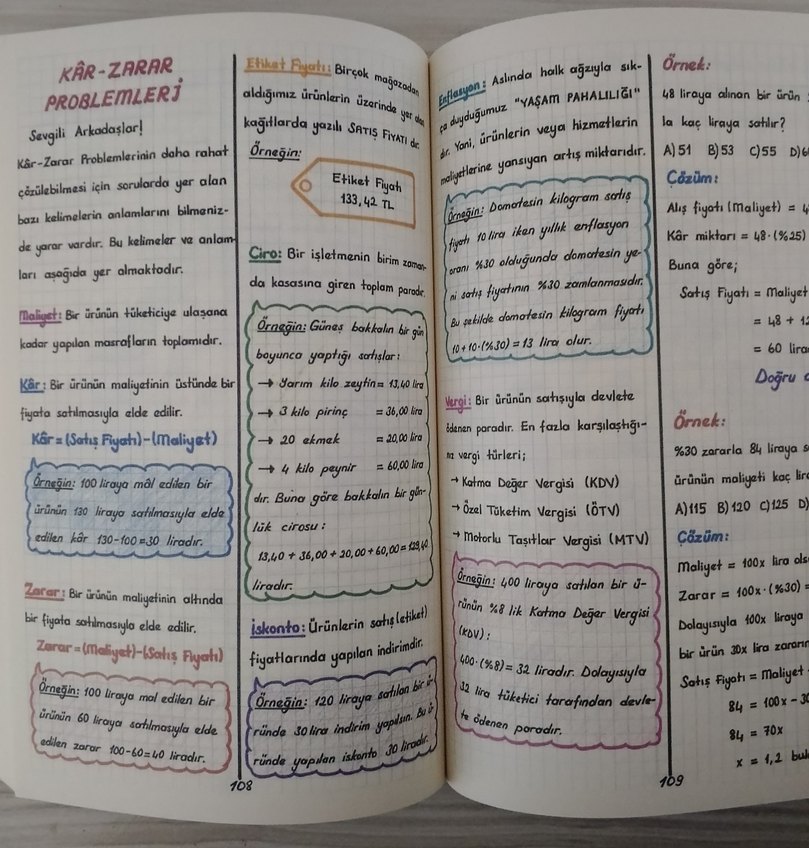 KÂR-ZARAR
PROBLEMLERİ
Sevgili Arkadaşlar!
Kâr-Zarar Problemlerinin daha rahat
çözülebilmesi için sorularda yer alan
bazı kelimelerin anlamlarını bilmeniz-
de yarar vardır. Bu kelimeler ve anlam-
ları aşağıda yer almaktadır.
Maliyet: Bir ürünün tüketiciye ulaşana
kadar yapılan masrafların toplamıdır.
Kâr: Bir ürünün maliyetinin üstünde bir
fiyata satılmasıyla elde edilir.
Kâr=(Satış Fiyatı)-(Maliyet)
Örneğin: 100 liraya mâl edilen bir
ürünün 130 liraya satılmasıyla elde
edilen kâr 130-100=30 liradır.
Zarar: Bir ürünün maliyetinin altında
bir fiyata satılmasıyla elde edilir.
Zarar=(Maliyet)-(Satış Fiyatı)
Örneğin: 100 liraya mal edilen bir
ürünün 60 liraya satılmasıyla elde
edilen zarar 100-60=40 liradır.
Etiket Fiyatı: Birçok mağazadan
aldığımız ürünlerin üzerinde yer alan
kağıtlarda yazılı SATIŞ FİYATI dır.
Örneğin:
Etiket Fiyatı
133,42 TL
Ciro: Bir işletmenin birim zaman-
da kasasına giren toplam paradır.
Örneğin: Güneş bakkalın bir gün
boyunca yaptığı satışlar:
→ Yarım kilo zeytin = 13,40 lira
→ 3 kilo pirinç = 36,00 lira
→ 20 ekmek = 20,00 lira
→ 4 kilo peynir = 60,00 lira
dır. Buna göre bakkalın bir gün-
lük cirosu:
13,40 + 36,00 + 20,00 + 60,00 = 129,40
liradır.
İskonto: Ürünlerin satış(etiket)
fiyatlarında yapılan indirimdir.
Örneğin: 120 liraya satılan bir ü-
ründe 30 lira indirim yapılsın. Bu ü-
ründe yapılan iskonto 30 liradır.
108
Enflasyon: Aslında halk ağzıyla sık-
ça duyduğumuz "YAŞAM PAHALILIĞI"
dır. Yani, ürünlerin veya hizmetlerin
maliyetlerine yansıyan artış miktarıdır.
Örneğin: Domatesin kilogram satış
fiyatı 10 lira iken yıllık enflasyon
oranı %30 olduğunda domatesin ye-
ni satış fiyatının %30 zamlanmasıdır.
Bu şekilde domatesin kilogram fiyatı
10+10·(%30)=13 lira olur.
Vergi: Bir ürünün satışıyla devlete
ödenen paradır. En fazla karşılaştığı-
mız vergi türleri;
→ Katma Değer Vergisi (KDV)
→ Özel Tüketim Vergisi (ÖTV)
→ Motorlu Taşıtlar Vergisi (MTV)
Örneğin: 400 liraya satılan bir ü-
rünün %8 lik Katma Değer Vergisi
(KDV):
400·(%8)=32 liradır. Dolayısıyla
32 lira tüketici tarafından devle-
te ödenen paradır.
109
Örnek:
48 liraya alınan bir ürün
la kaç liraya satılır?
A)51 B)53 C)55 D)6
Çözüm:
Alış fiyatı (Maliyet) = 4
Kâr miktarı = 48·(%25)
Buna göre;
Satış Fiyatı = Maliyet
= 48 + 12
= 60 lira
Doğru
Örnek:
%30 zararla 84 liraya s
ürünün maliyeti kaç lira
A)115 B)120 C)125 D)
Çözüm:
Maliyet = 100x lira ols
Zarar = 100x·(%30) =
Dolayısıyla 100x liraya
bir ürün 30x lira zararın
Satış Fiyatı = Maliyet -
84 = 100x - 30
84 = 70x
x = 1,2 bul